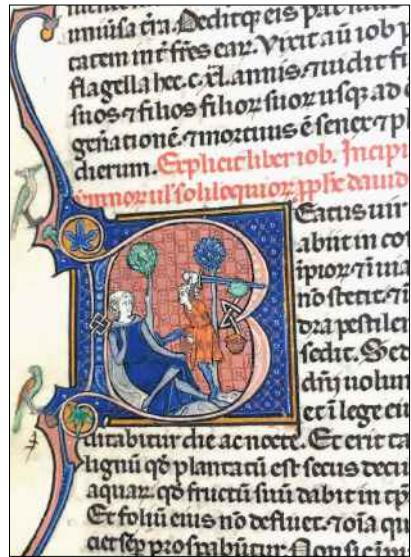 uniūsa t̄ra. Deditq; eis pat̄
tatem int̄ fr̄es eaꝝ. Vixit aū iob p
flagella hec. c.xl. annis. ⁊ uidit fi
suos ⁊ filios filioꝝ suoꝝ usq; ad
gen̄ationē. ⁊ mortuus ē senex ⁊ p
dierum. Explicit liber iob. Incipi
ymnoꝝ ul̓ soliloquioꝝ pph̄e dauid
Beatus uir
abiit in co
ipioꝝ ⁊ ī uia
nō stetit. ⁊ ī
dra pestilen
sedit. Sed
dn̄i uolun
et ī lege ei
ditabitur die ac nocte. Et erit ta
lignū qd̓ plantatū est secus decu
aquaꝝ. qd̓ fructū suū dabit in tp̄
Et foliū eius nō defluet. ⁊ oīa qu
prosꝑabūtur. Non sic īpi